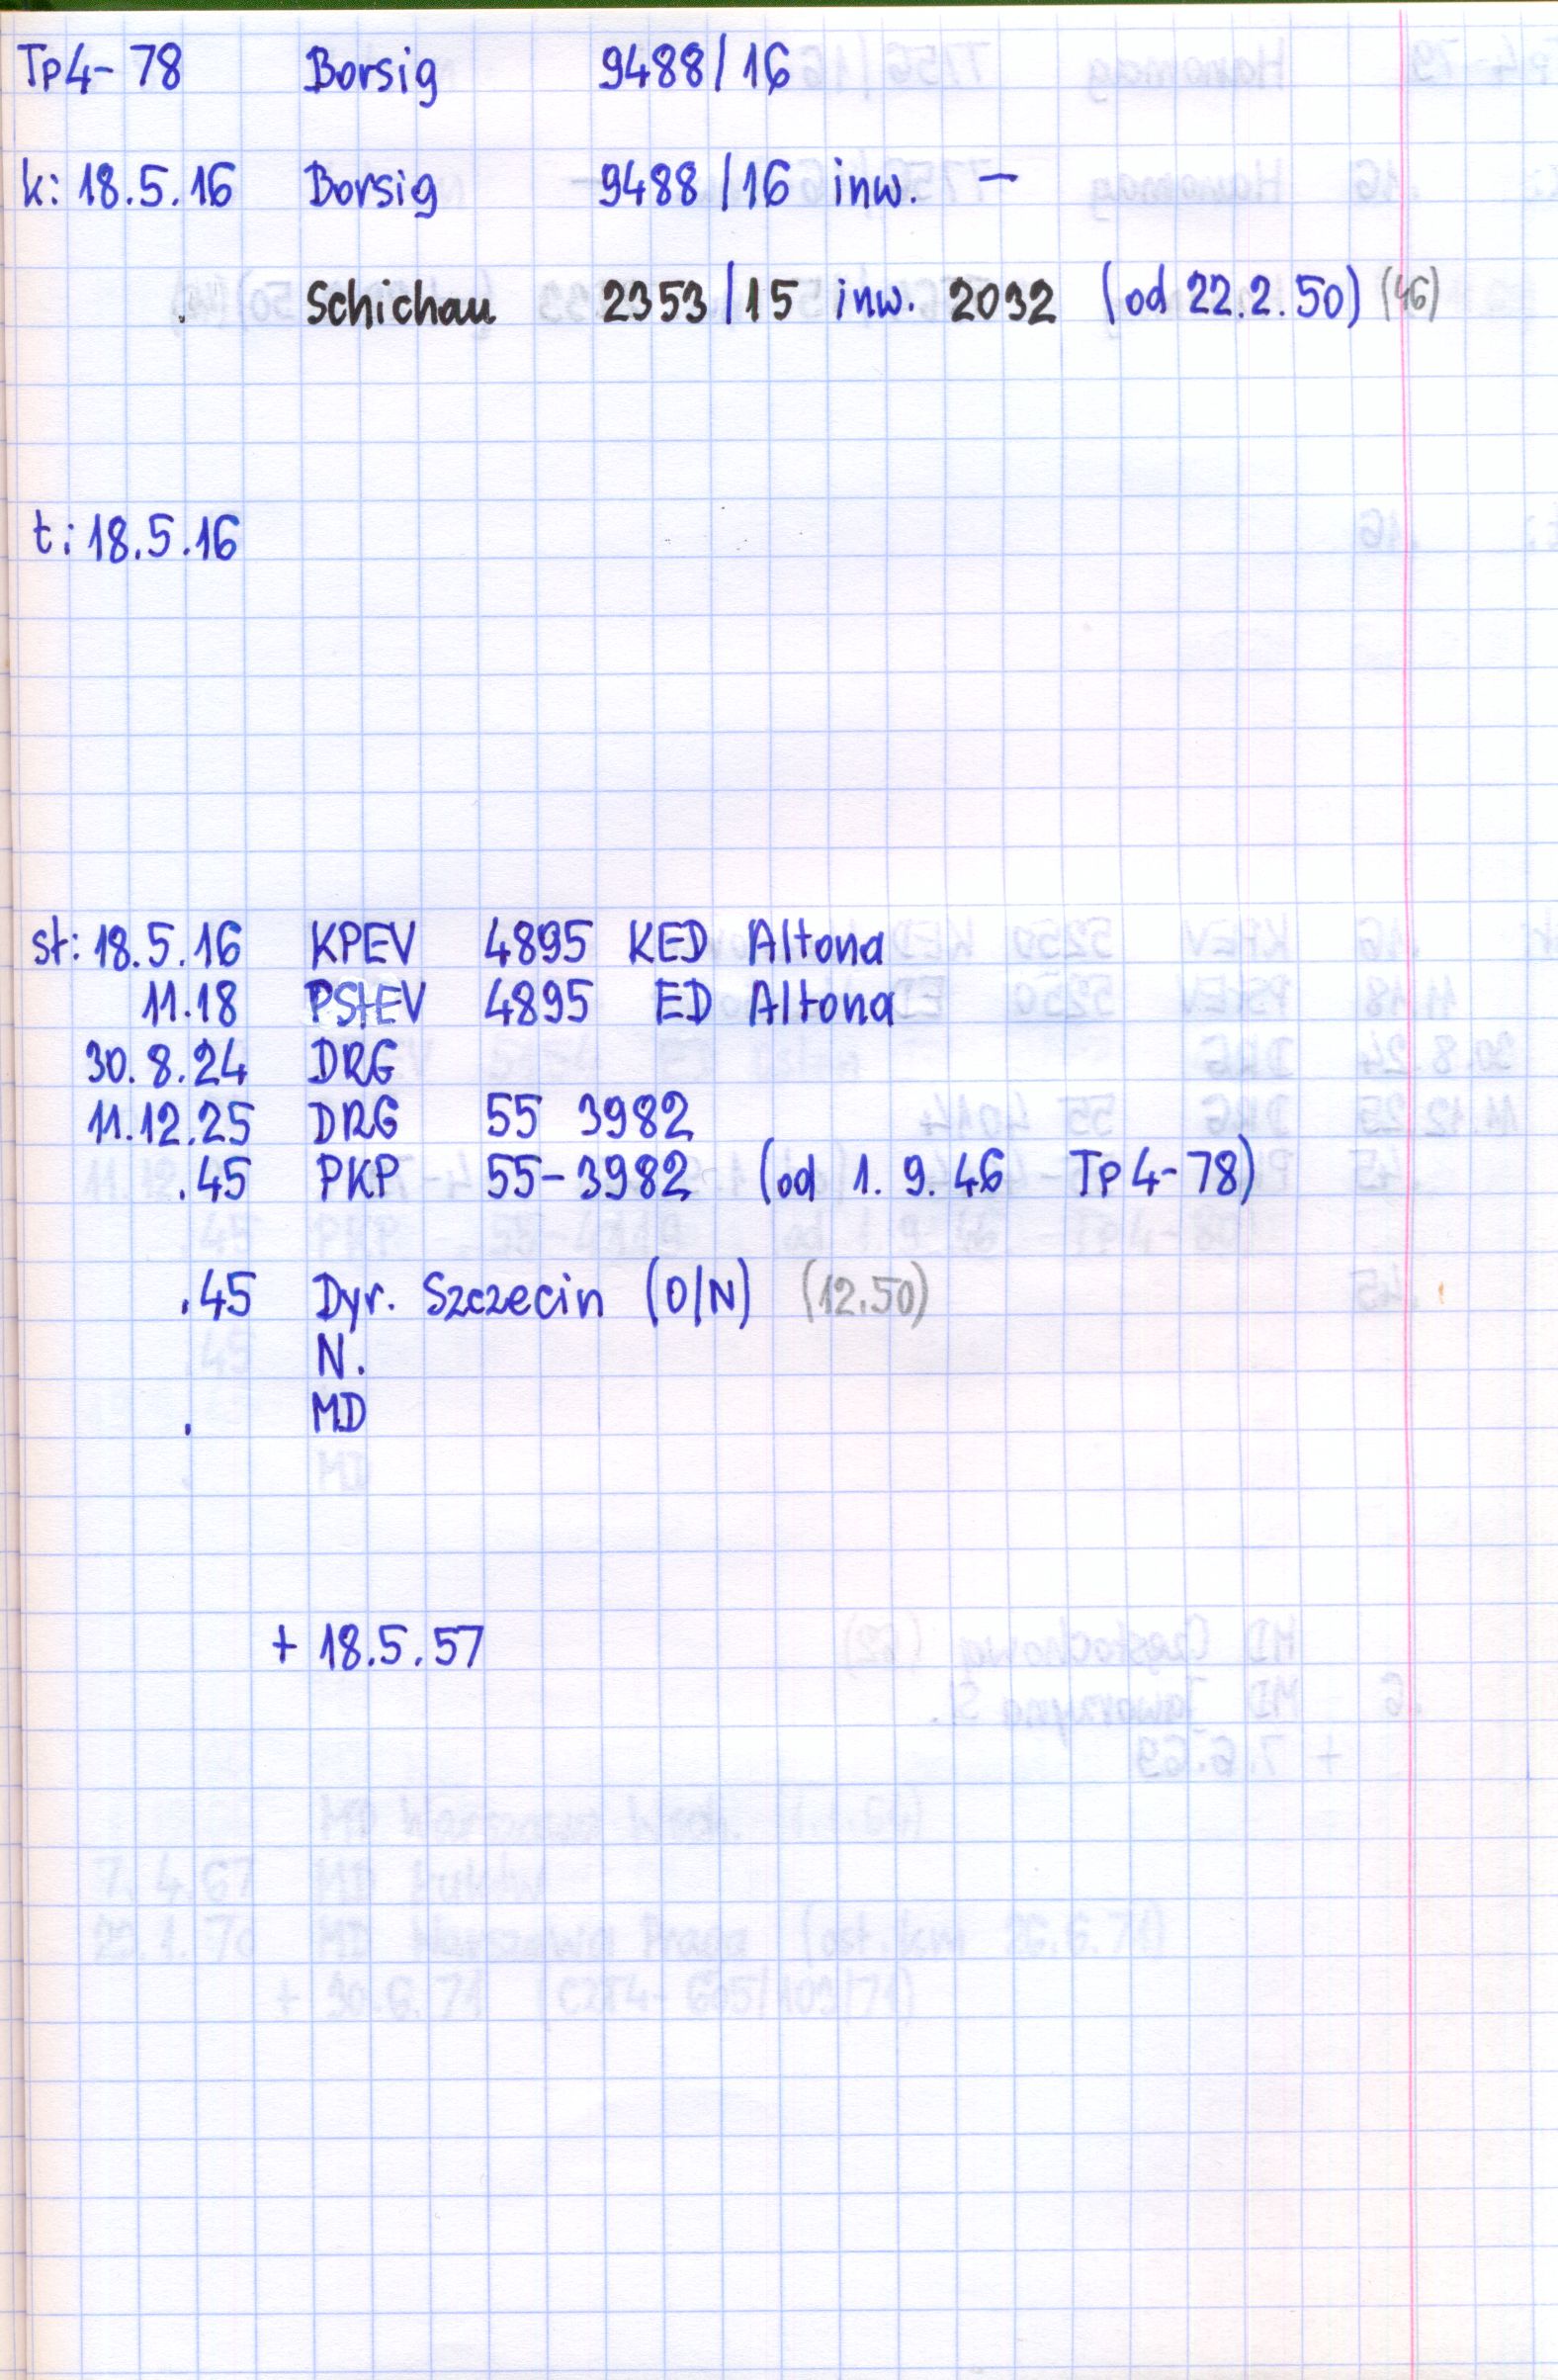 Tp4-78 Borsig 9488/16
k: 18.5.16 Borsig 9488/16 inw. –
. Schichau 2353/15 inw. 2032 (od 22.2.50) (46)
t: 18.5.16
st: 18.5.16 KPEV 4895 KED Altona
11.18 PStEV 4895 ED Altona
30.8.24 DRG
11.12.25 DRG 55 3982
.45 PKP 55-3982 (od 1.9.46 Tp4-78)
.45 Dyr. Szczecin (O/N) (12.50)
N.
. MD
+ 18.5.57